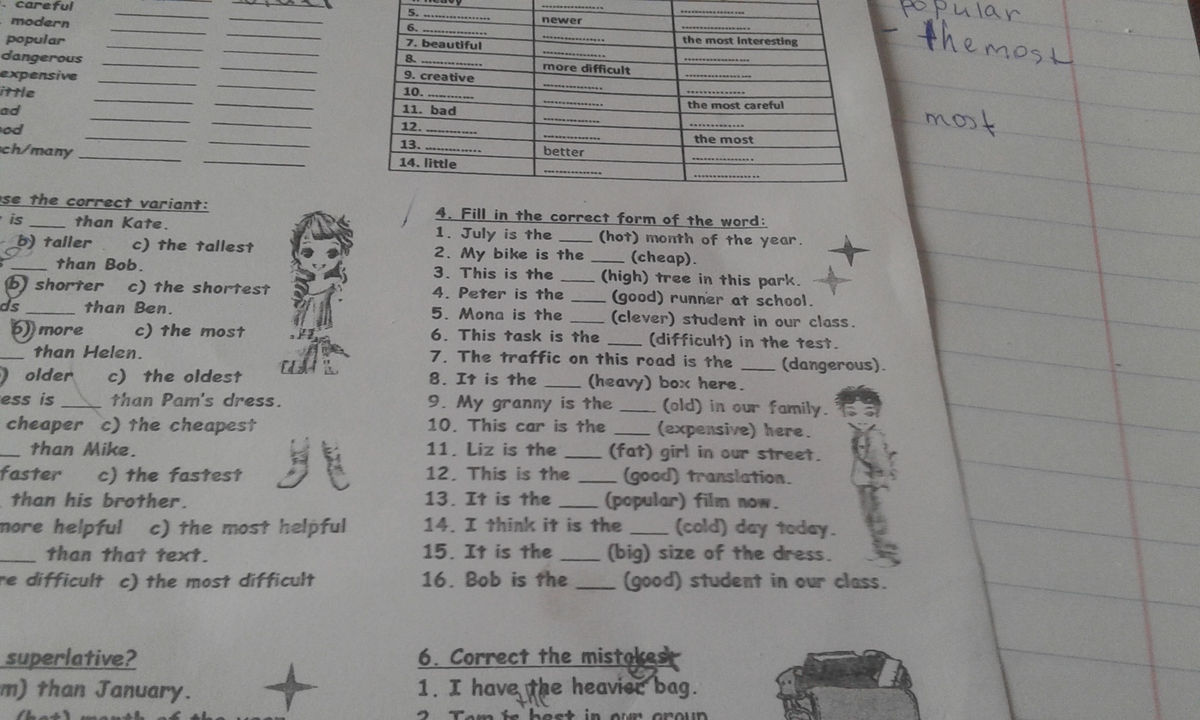 careful
modern
popular
dangerous
expensive
ittle
ad
ood
ch/many
5. ................ newer ................
6. ................ ................ the most interesting
7. beautiful ................ ................
8. ................ more difficult ................
9. creative ................ ................
10. ............ ................ the most careful
11. bad ................ ................
12. ............ ................ the most
13. ............... better ................
14. little ................ ................
popular
- the most
most
se the correct variant:
is ____ than Kate.
b) taller c) the tallest
____ than Bob.
b) shorter c) the shortest
ds ____ than Ben.
b) more c) the most
____ than Helen.
) older c) the oldest
ess is ____ than Pam's dress.
cheaper c) the cheapest
____ than Mike.
faster c) the fastest
than his brother.
more helpful c) the most helpful
____ than that text.
re difficult c) the most difficult
4. Fill in the correct form of the word:
1. July is the ____ (hot) month of the year.
2. My bike is the ____ (cheap).
3. This is the ____ (high) tree in this park.
4. Peter is the ____ (good) runner at school.
5. Mona is the ____ (clever) student in our class.
6. This task is the ____ (difficult) in the test.
7. The traffic on this road is the ____ (dangerous).
8. It is the ____ (heavy) box here.
9. My granny is the ____ (old) in our family.
10. This car is the ____ (expensive) here.
11. Liz is the ____ (fat) girl in our street.
12. This is the ____ (good) translation.
13. It is the ____ (popular) film now.
14. I think it is the ____ (cold) day today.
15. It is the ____ (big) size of the dress.
16. Bob is the ____ (good) student in our class.
superlative?
m) than January.
(hot) month of the year
6. Correct the mistakes:
1. I have the heavier bag.
the
2. Tom is best in our group